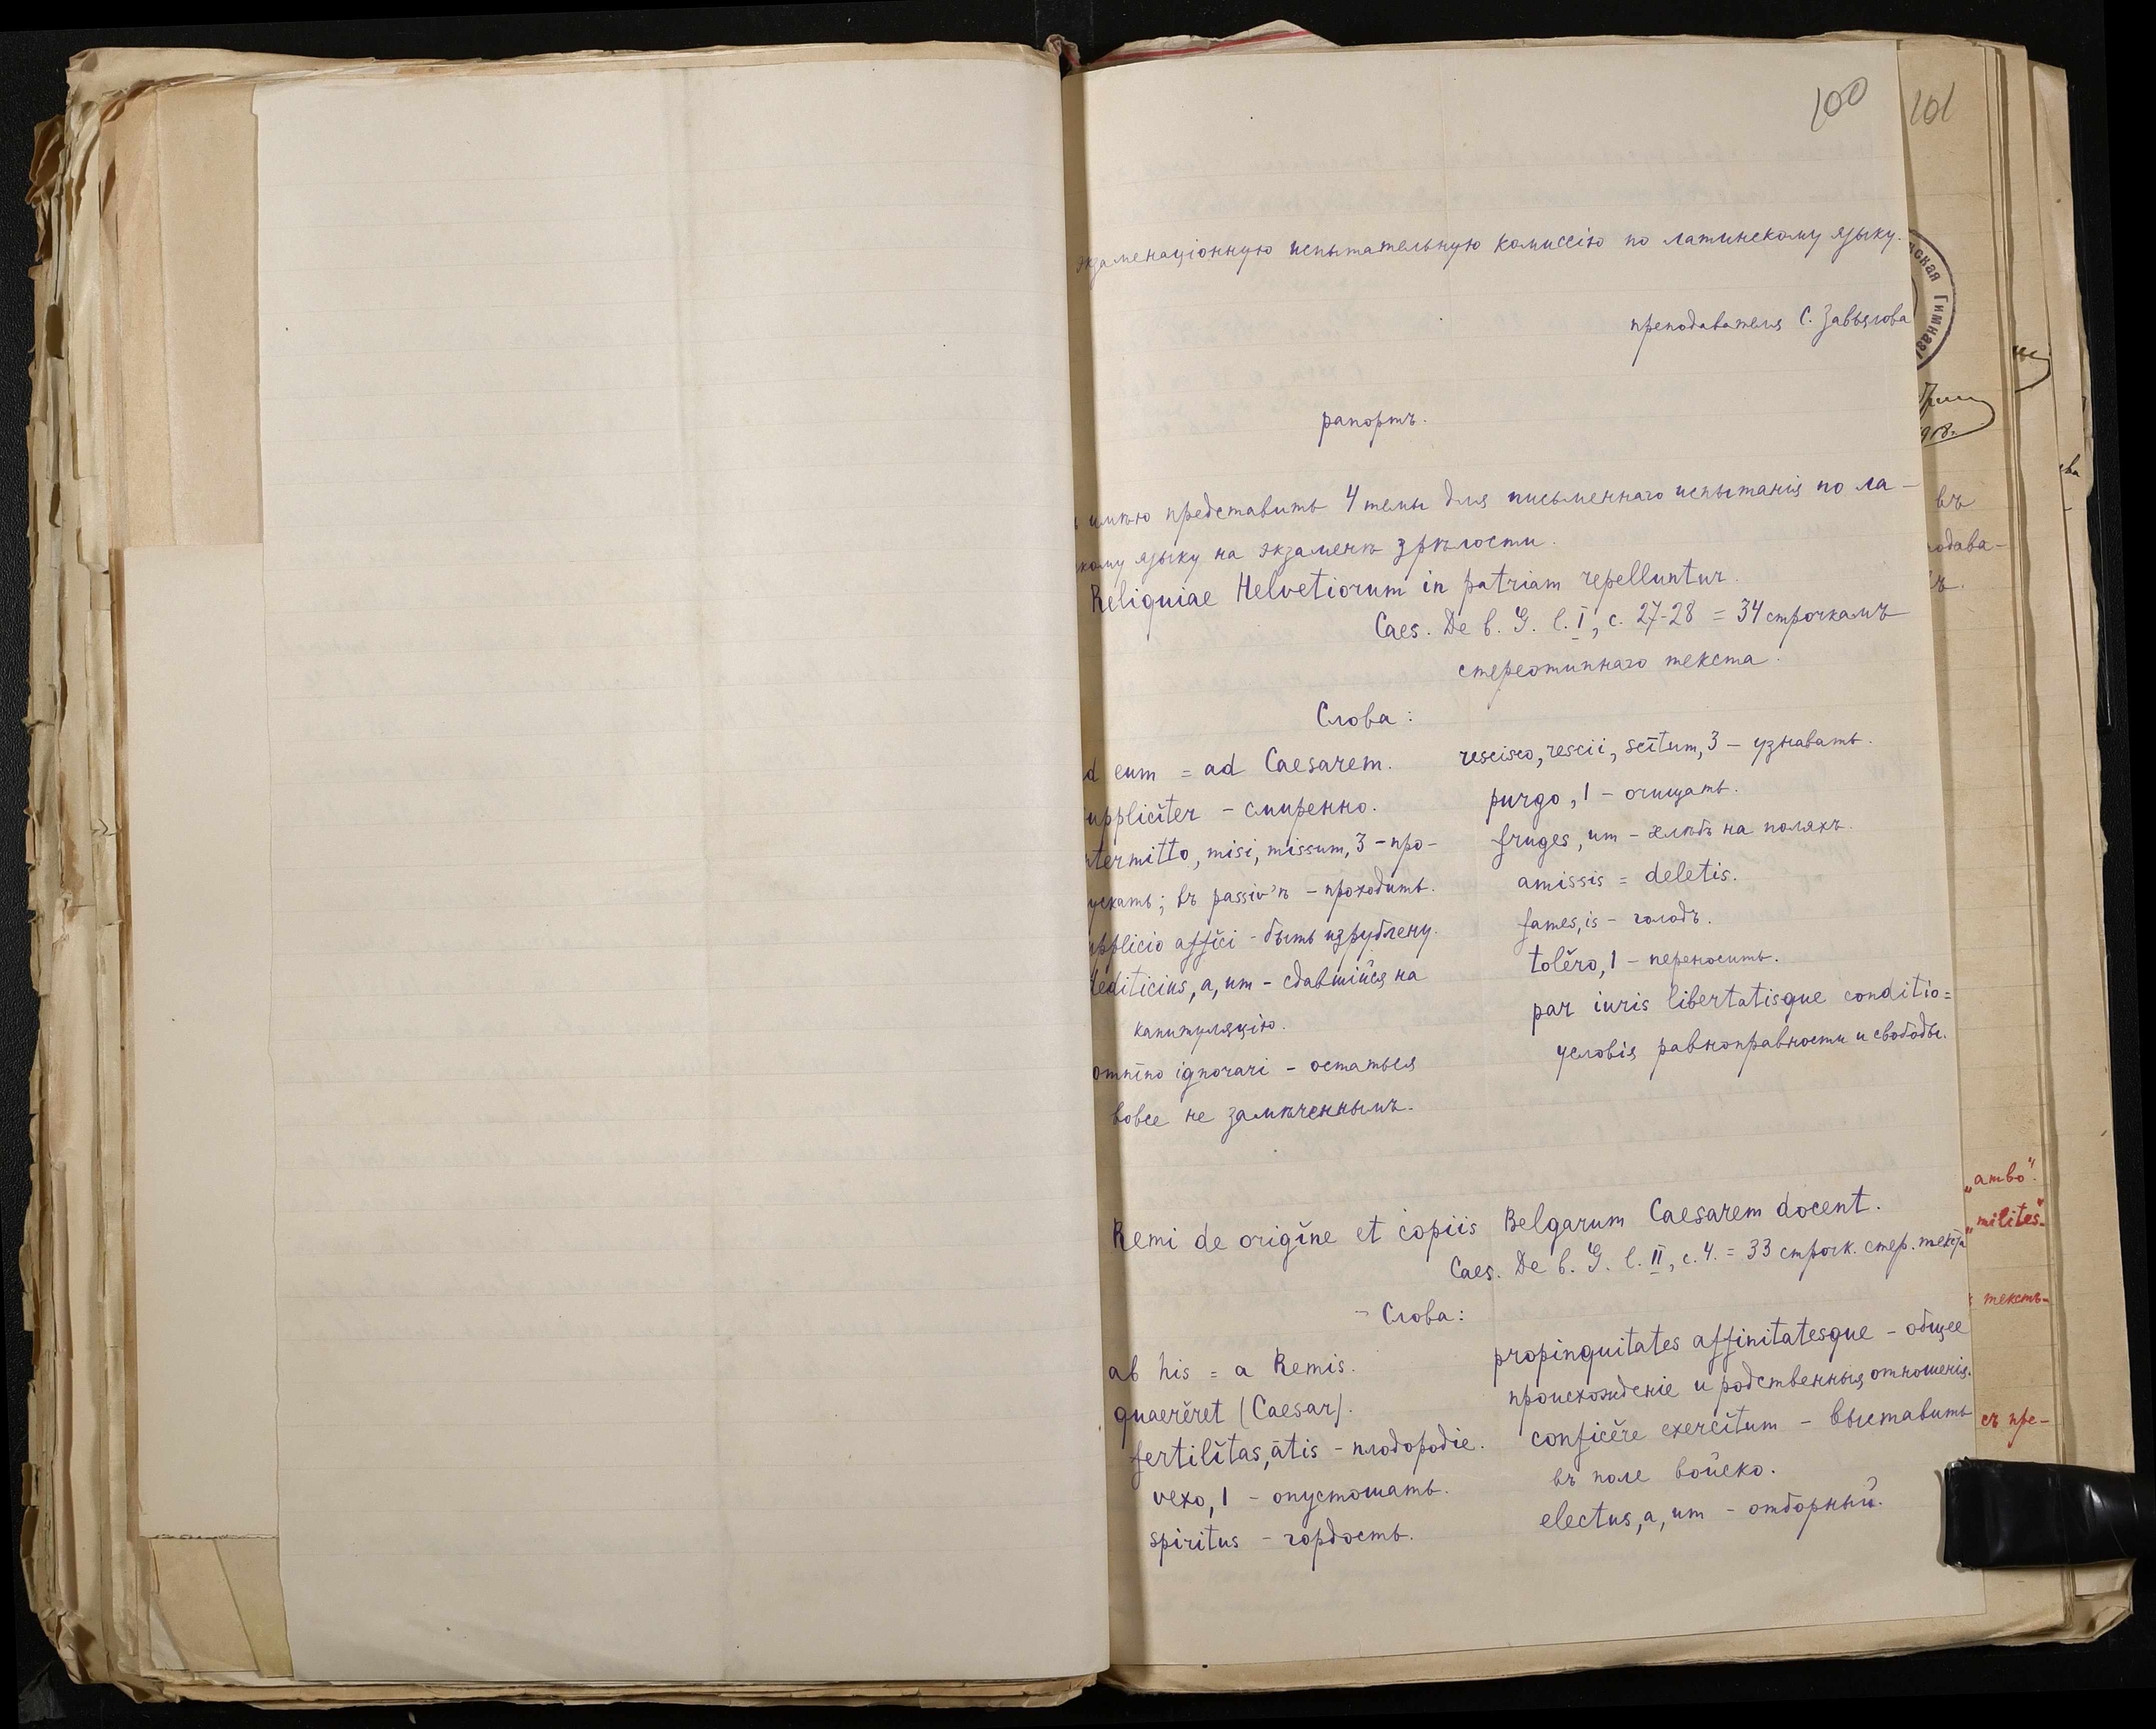 100
101
экзаменаціонную испытательную комиссію по латинскому языку.
преподавателя С. Завьялова
рапортъ.
имѣю представить 4 темы для письменнаго испытанія по ла-
кому языку на экзаменѣ зрѣлости.
Reliquiae Helvetiorum in patriam repelluntur.
Caes. De b. G. l. I, c. 27-28 = 34 строчкамъ
стереотипнаго текста.
Слова:
d eum = ad Caesarem.
upplicĭter - смиренно.
ntermitto, misi, missum, 3 - про-
ускать; въ passiv'ѣ - проходить.
upplicio affĭci - быть изрублену.
dediticius, a, um - сдавшійся на
капитуляцію.
omnīno ignorari - остаться
вовсе не замѣченнымъ.
rescisco, rescii, scītum, 3 - узнавать.
purgo, 1 - очищать.
fruges, um - хлѣбъ на поляхъ.
amissis = deletis.
fames, is - голодъ.
tolĕro, 1 - переносить.
par iuris libertatisque conditio =
условія равноправности и свободы.
Remi de origĭne et copiis Belgarum Caesarem docent.
Caes. De b. G. l. II, c. 4. = 33 строк. стер. текста
Слова:
ab his = a Remis.
quaerĕret (Caesar).
fertilĭtas, ātis - плодородіе.
vexo, 1 - опустошать.
spiritus - гордость.
propinquitates affinitatesque - общее
происхожденіе и родственныя отношенія.
conficĕre exercĭtum - выставить
въ поле войско.
electus, a, um - отборный.
ская Гимназі
въ
одава-
ъ.
„ambo".
„milites"
текстъ-
съ пре-